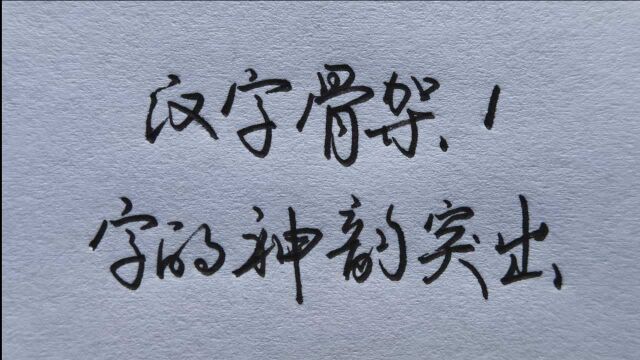 汉字骨架！
字的神韵突出